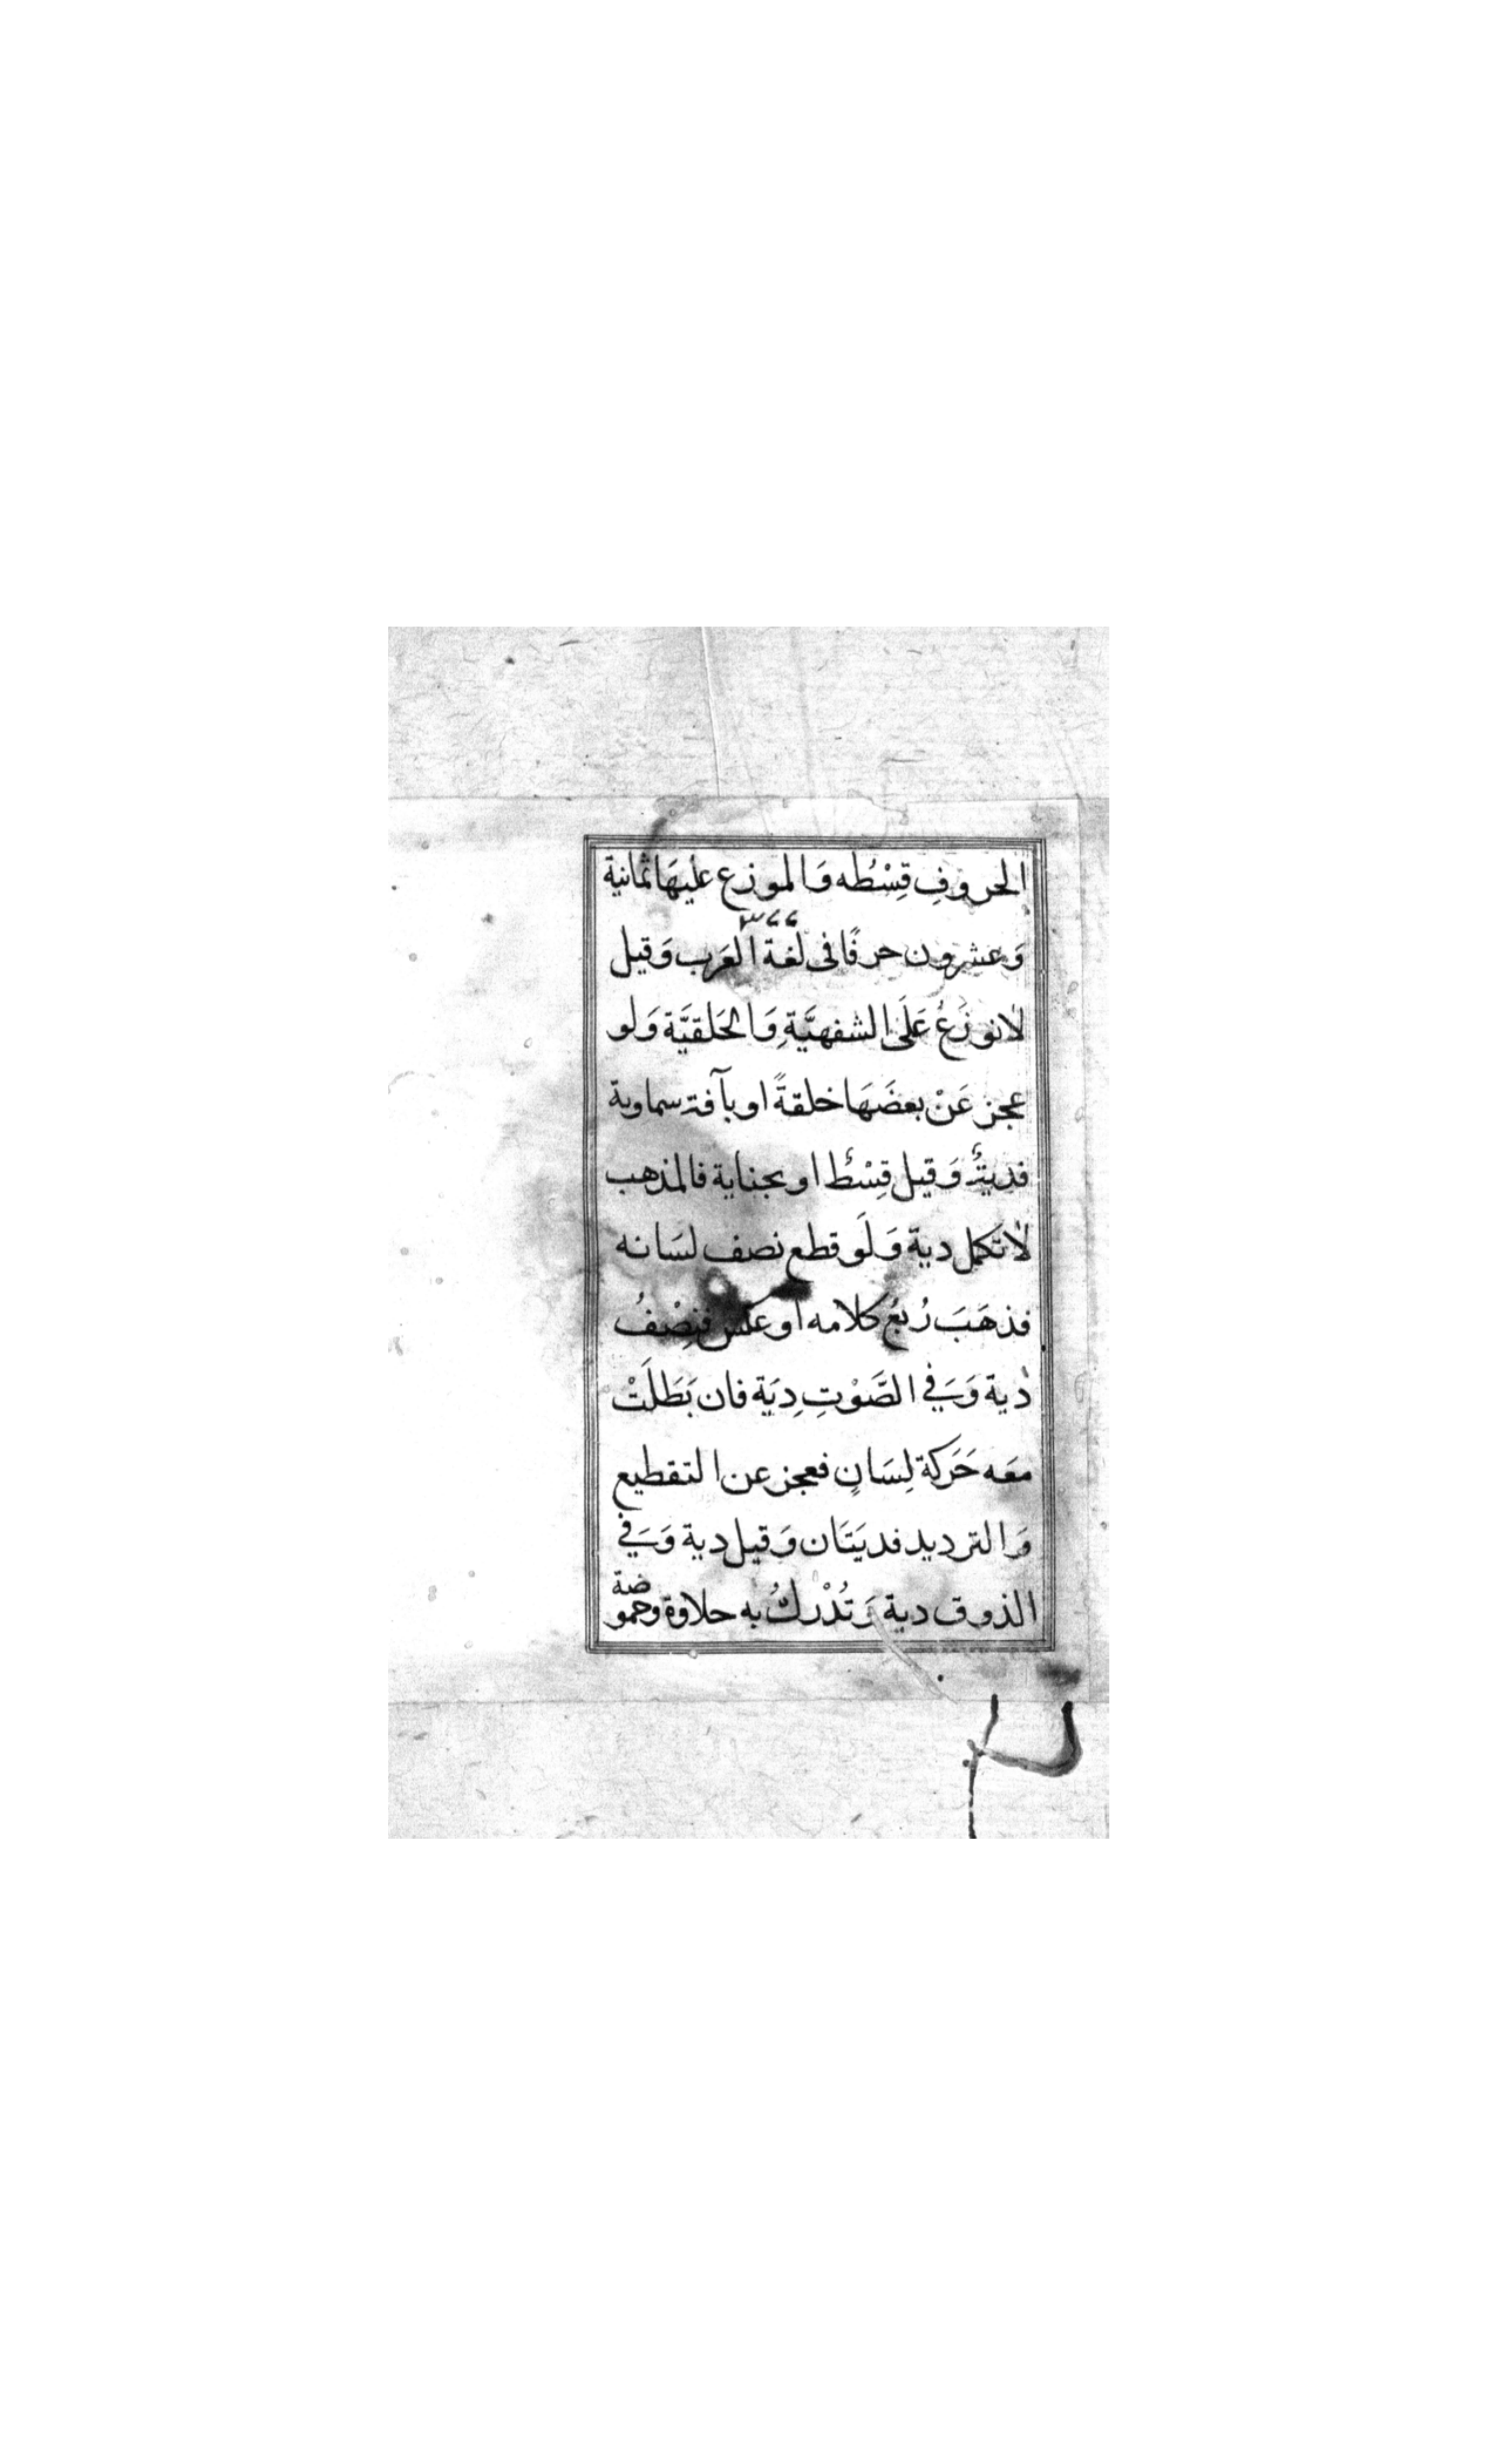 الحروفِ قِسْطُه وَالموزع عليهَا ثمانية
وَعشرون حرفًا فى لغة العَرب وَقيل
لا نوزعُ عَلَى الشفهيَّةِ وَالحَلقيَّة وَلو
عجز عَنْ بعضَهَا خلقةً او بآفة سماوية
فديتهُ وَقيل قِسْطُ او بجناية فالمذهب
لا تكمل دية وَلَو قطع نصف لسَانه
فذهَبَ رُبعُ كلامه او عكس فنِصْفُ
دية وَفي الصَّوْتِ دِيَة فان بَطَلَتْ
معَه حَرَكة لِسَانٍ فعجز عن التقطيع
وَالترديد فديَتَان وَقيل دية وَفي
الذوق دية وَتُدْركُ به حلاوة وحموضة